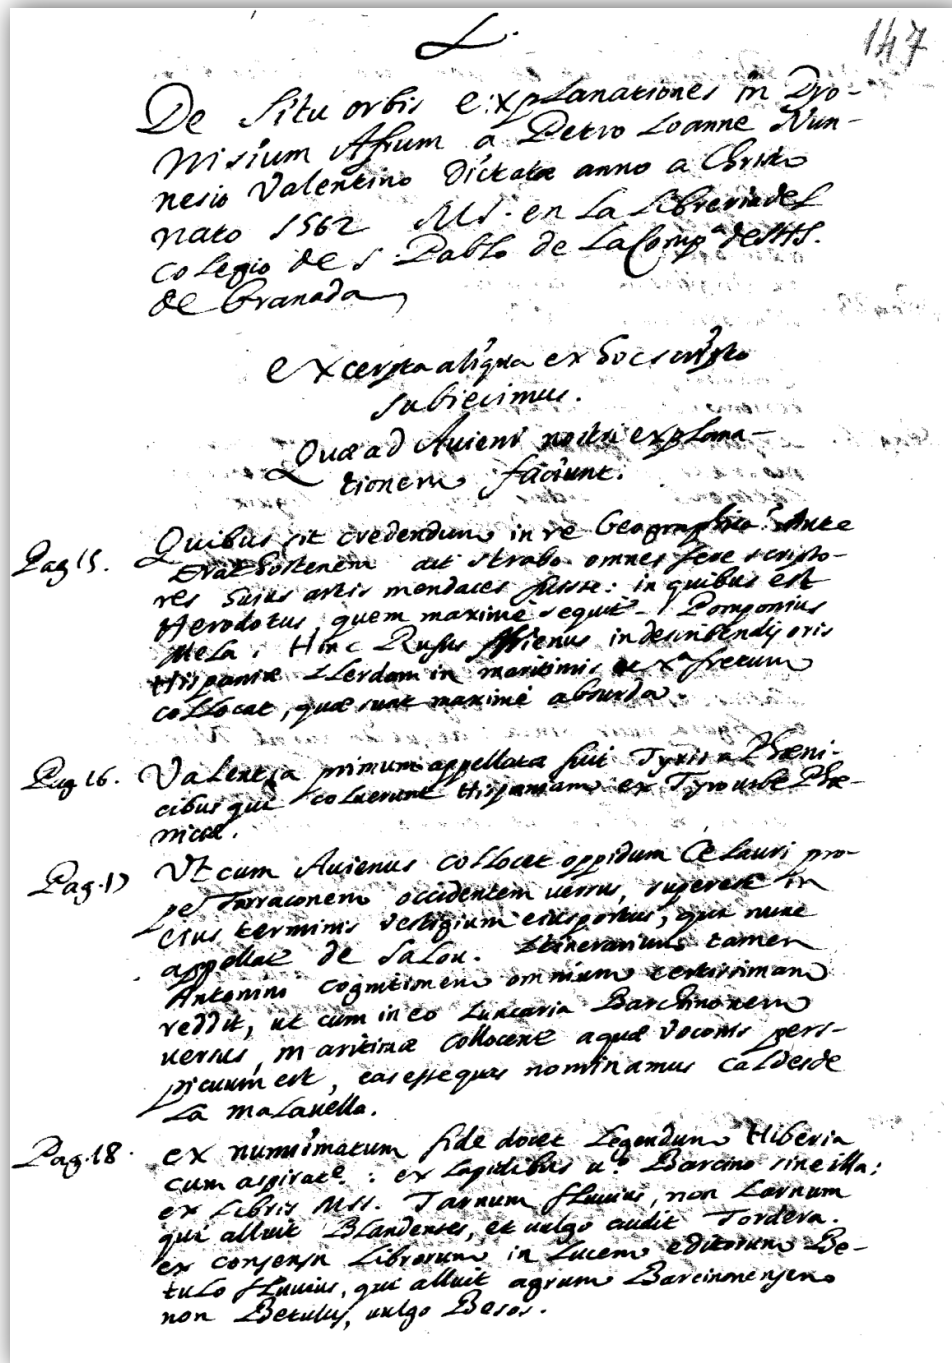 147
De Situ orbis explanationes in Dyo-
nisium Afrum a Petro Loanne Nun-
nesio Valentino dictatæ anno a Christo
nato 1562 MS. en la libreria del
colegio de S. Pablo de la Comp.ª de IHS.
de Granada
excerpta aliqua ex hoc scripto
subiecimus.
Quæ ad Auieni nostri explana-
tionem faciunt.
Pag 15. Quibus sit credendum in re Geographica? Ante
Erathostenem ait Strabo omnes fere scripto-
res huius artis mendaces fuisse: in quibus est
Herodotus, quem maximè sequit Pomponius
Mela; Hinc Rufus in describendis oris
Hispaniæ Llerdam in maritimis fretum
collocat, quæ sunt maximè absurda.
Pag 16. Valentia primum appellata fuit Tyris a Phæni-
cibus qui coluerunt Hispaniam ex Tyro urbe Phæ-
niciæ.
Pag. 17 Ut cum Auienus collocet oppidum Celauri pro-
pe Tarraconem occidentem uersus, superest in
eius terminis vestigium eius portus, qui nunc
appellat de Salou. Itinerarium tamen
Antonini cognitionem omnium certissimam
reddit, ut cum in eo Luncaria Barchinonem
uersus, maritimæ collocent aquæ Voconis pers-
picuum est, eas esse quas nominamus Caldes de
la malauella.
Pag. 18. ex numismatum fide docet legendum Hiberia
cum aspirat.e : ex lapidibus u.º Barcino sine illa;
ex libris MSS. Tarnum fluuius, non Larnum
qui alluit Blandenses, et uulgo audit Tordera.
ex consensu librorum in lucem editorum Be-
tulo fluuius, qui alluit agrum Barcinonensem
non Betulus, uulgo Besos.